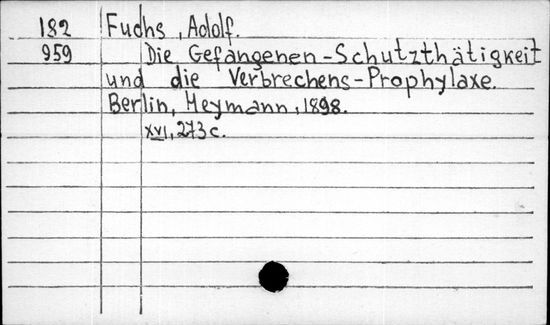 182 Fuchs, Adolf.
959 Die Gefangenen-Schutzthätigkeit
und die Verbrechens-Prophylaxe.
Berlin, Heymann, 1898.
XVI, 273 c.